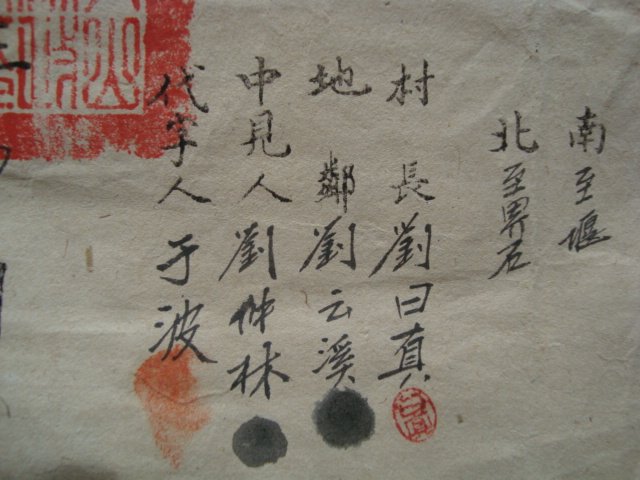 南至堰
北至界石
村長劉曰真
地鄰劉云溪
中見人劉仲林
代字人于波